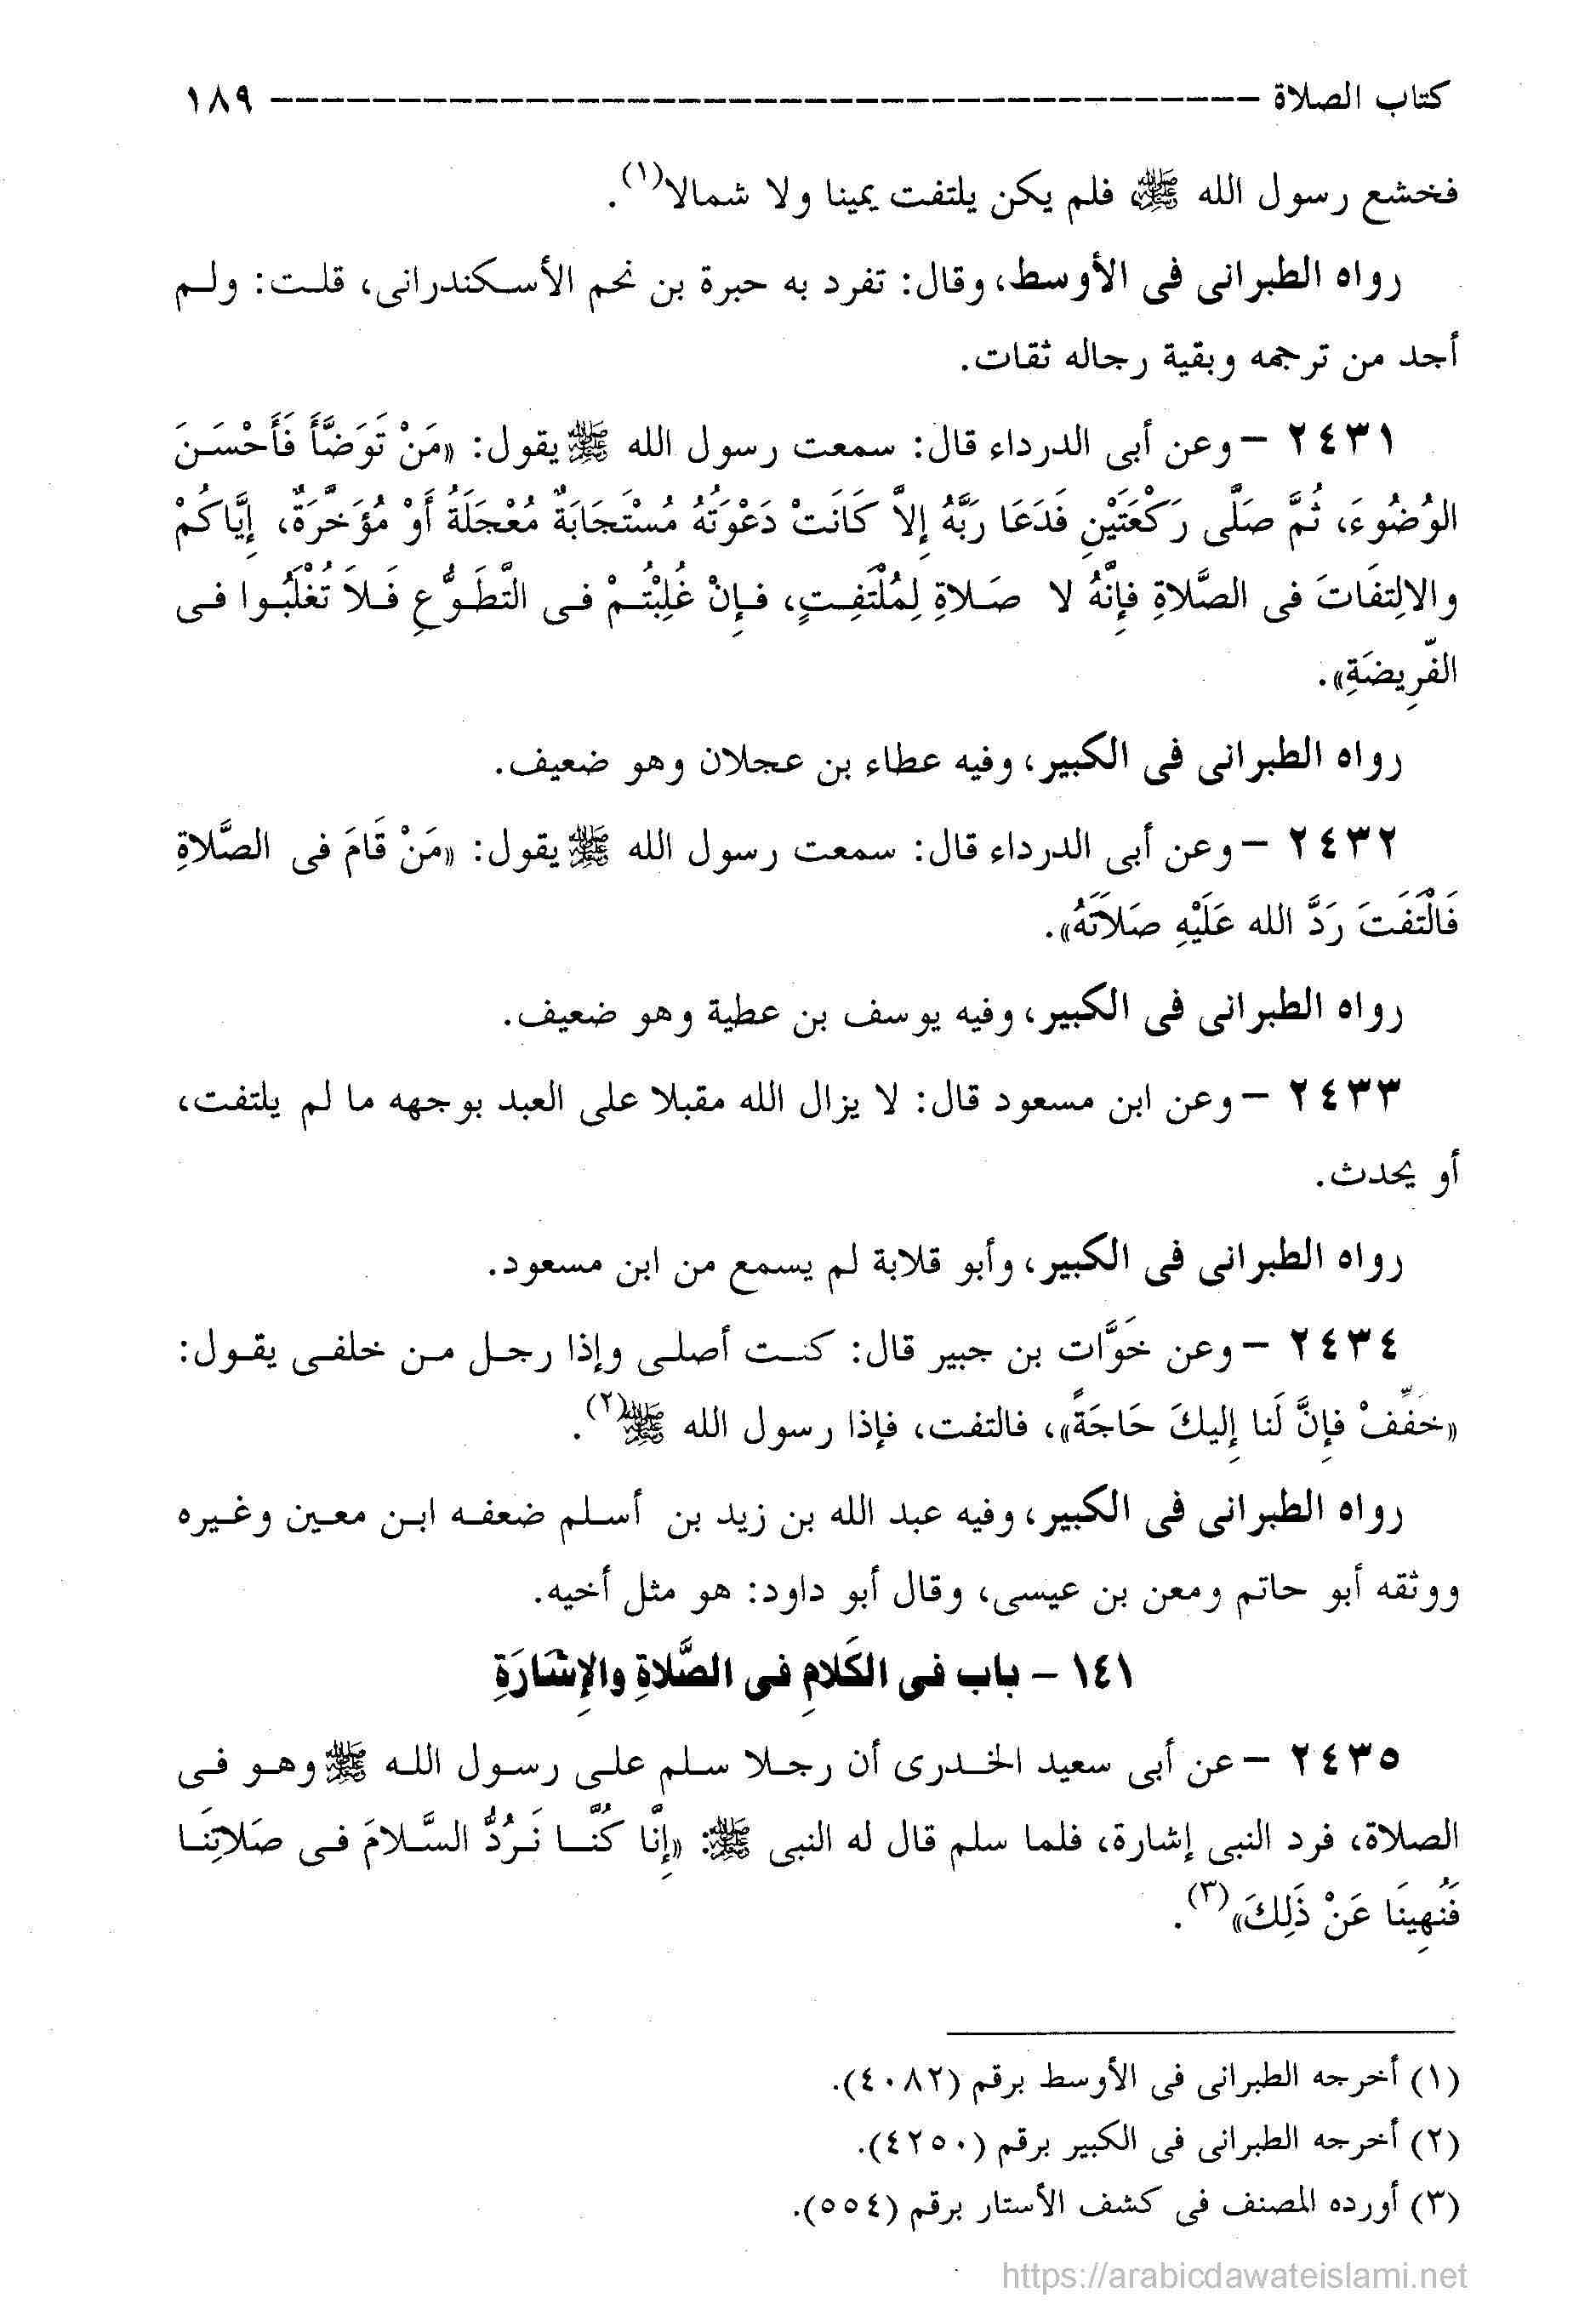 كتاب الصلاة ---------------------------------------- ١٨٩
فخشع رسول الله ﷺ فلم يكن يلتفت يمينا ولا شمالا(١).
رواه الطبرانى فى الأوسط، وقال: تفرد به حبرة بن نحم الأسكندرانى، قلت: ولم
أجد من ترجمه وبقية رجاله ثقات.
٢٤٣١ – وعن أبى الدرداء قال: سمعت رسول الله ﷺ يقول: «مَنْ تَوَضَّأَ فَأَحْسَنَ
الوُضُوءَ، ثُمَّ صَلَّى رَكْعَتَيْنِ فَدَعَا رَبَّهُ إِلاَّ كَانَتْ دَعْوَتُهُ مُسْتَجَابَةٌ مُعْجَلَةُ أَوْ مُؤَخَّرَةٌ، إِيَّاكُمْ
والالِتفَاتَ فى الصَّلاةِ فإِنَّهُ لا صَلاةِ لِمُلْتَفِتٍ، فإِنْ غُلِبْتُمْ فى التَّطَوُّعِ فَلاَ تُغْلَبُوا فى
الفّرِيضَةِ».
رواه الطبرانى فى الكبير، وفيه عطاء بن عجلان وهو ضعيف.
٢٤٣٢ – وعن أبى الدرداء قال: سمعت رسول الله ﷺ يقول: «مَنْ قَامَ فى الصَّلاةِ
فَالْتَفَتَ رَدَّ الله عَلَيْهِ صَلاَتَهُ».
رواه الطبرانى فى الكبير، وفيه يوسف بن عطية وهو ضعيف.
٢٤٣٣ – وعن ابن مسعود قال: لا يزال الله مقبلا على العبد بوجهه ما لم يلتفت،
أو يحدث.
رواه الطبرانى فى الكبير، وأبو قلابة لم يسمع من ابن مسعود.
٢٤٣٤ – وعن خَوَّات بن جبير قال: كنت أصلى وإذا رجل من خلفى يقول:
«خفِّفْ فإِنَّ لَنا إِليكَ حَاجَةً»، فالتفت، فإذا رسول الله ﷺ(٢).
رواه الطبرانى فى الكبير، وفيه عبد الله بن زيد بن أسلم ضعفه ابن معين وغيره
ووثقه أبو حاتم ومعن بن عيسى، وقال أبو داود: هو مثل أخيه.
١٤١ – باب فى الكَلامِ فى الصَّلاةِ والإِشَارَةِ
٢٤٣٥ – عن أبى سعيد الخدرى أن رجلا سلم على رسول الله ﷺ وهو فى
الصلاة، فرد النبى إشارة، فلما سلم قال له النبى ﷺ: «إِنَّا كُنَّا نَرُدُّ السَّلامَ فى صَلاتِنَا
فَنُهِينَا عَنْ ذَلِكَ»(٣).
(١) أخرجه الطبرانى فى الأوسط برقم (٤٠٨٢).
(٢) أخرجه الطبرانى فى الكبير برقم (٤٢٥٠).
(٣) أورده المصنف فى كشف الأستار برقم (٥٥٤).
https://arabicdawateislami.net